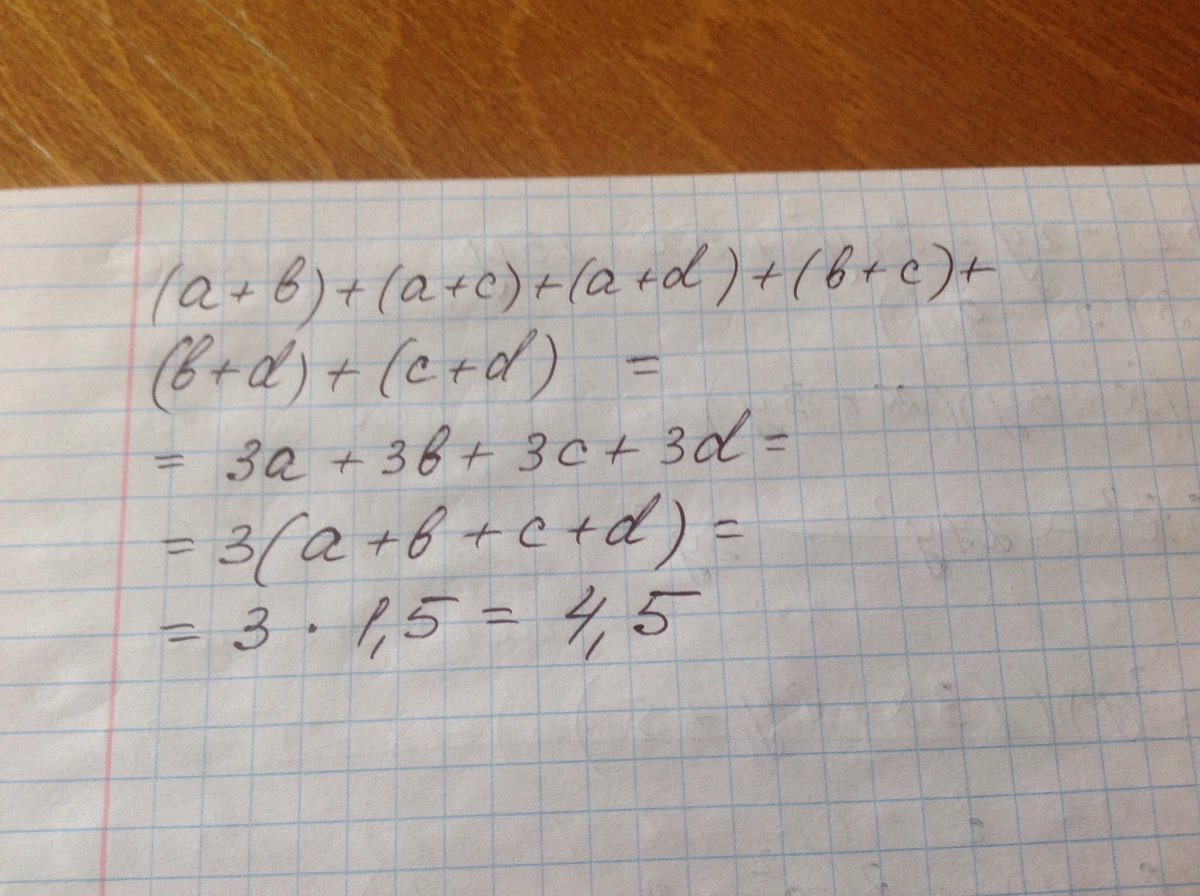 (a+b)+(a+c)+(a+d)+(b+c)+
(b+d)+(c+d) =
= 3a+3b+3c+3d=
=3(a+b+c+d)=
= 3 · 1,5 = 4,5